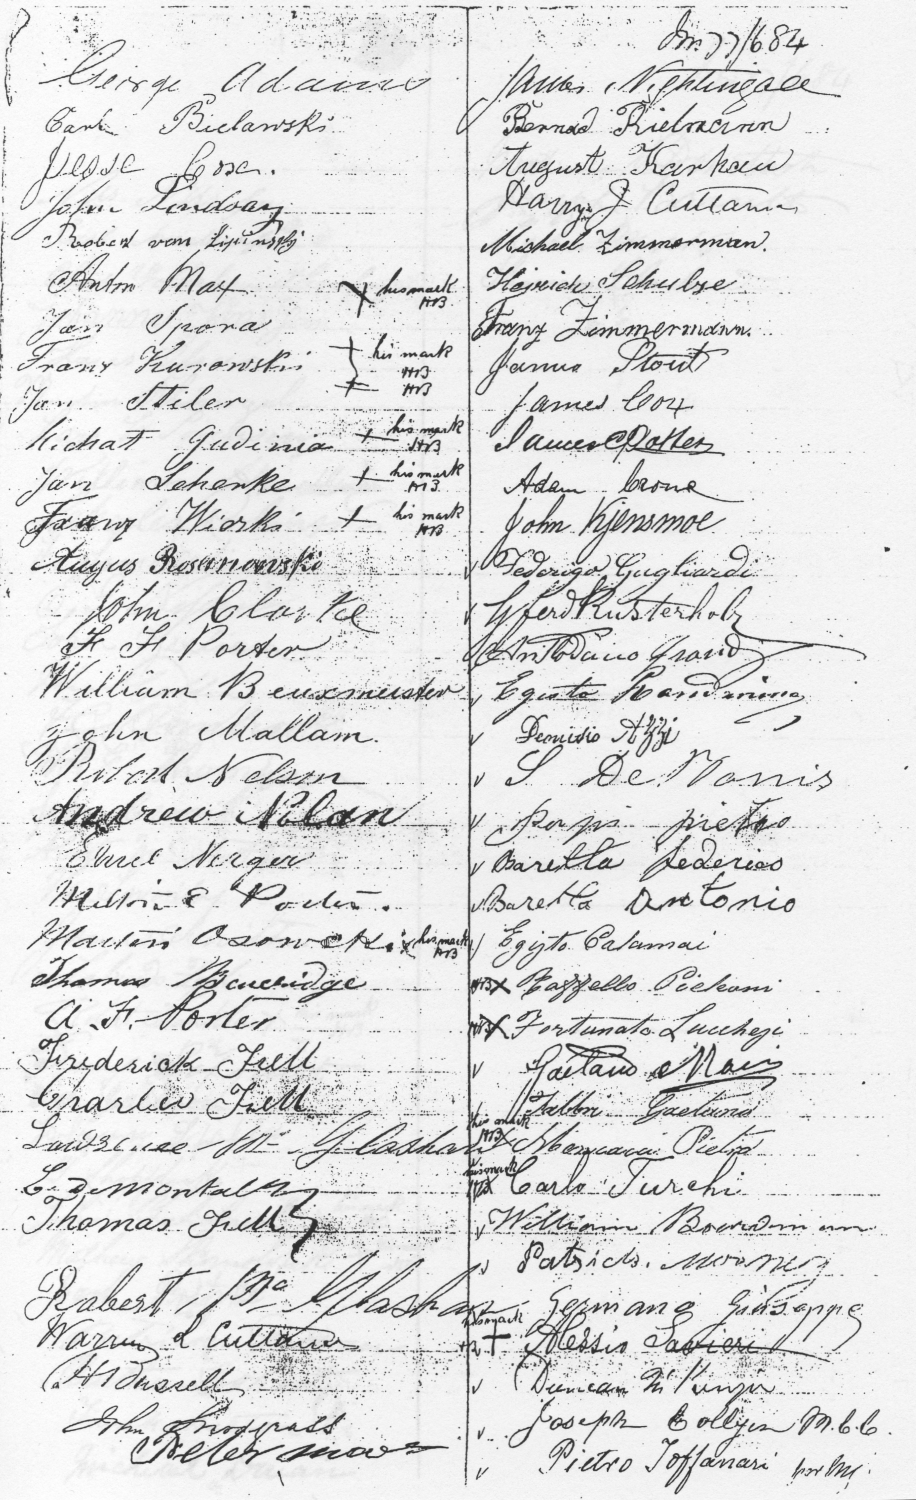 George Adams
Carl Bielawski
Jesse Cox.
John Lindsay
Robert von Lipinsky
Anton Max his mark HB
Jan Spora
Franz Kurowski his mark HB
Jan Stiler HB
Michat Gudinia his mark HB
Jan Scherke his mark HB
Franz Wiorki his mark HB
Augus Rosenowski
John Clarke
F F Porter
William Beuxmeister
John Mallam.
Robert Nelson
Andrew Nolan
Nerger
Milton E Porter.
Martin Osowski his mark HB
Thomas Beveridge
A. F. Porter
Frederick Tull
Charles Tull
Mc Glashan
Thomas Tull
Robert Mc Glashan
Warren L Cuttance
H Bussell
John Snodgrass
Peter
/6 84
James Nightingale
Bernad Rielmann
August Karkau
Harry J Cuttance
Michael Zimmerman.
Heinrich Schulze
Franz Zimmermann.
James Stout
James Cox
Adam Crone
John Kjensmoe
Federigo Gugliardi
Rusterholz
Egisto
Deonisio Azzi
S De
pietro
Baretta federico
Baretta antonio
Egisto Calamai
HB X Raffello Picheni
HB X Fortunato Lucchesi
Gaetano
Gaetano
his mark HB X Pietro
his mark HB X Carlo Turchi
William Boardman
Patrick. Mooney
Germano Giuseppe
his mark Alessio
Duncan
Joseph Collyer M.C.C.
Pietro Toffanari